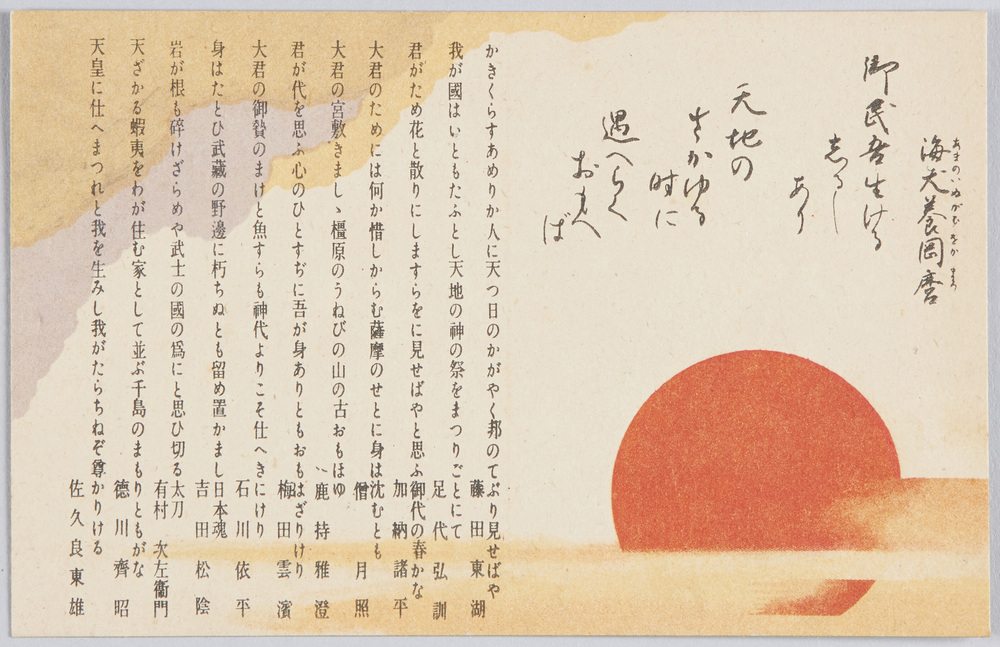 海犬養岡麿
あまのいぬがひをかまろ
御民吾生ける
志るし
あり
天地の
さかゆる
時に
遇へらく
おもへ
ば
かきくらすあめりか人に天つ日のかがやく邦のてぶり見せばや
藤田東湖
我が國はいともたふとし天地の神の祭をまつりごとにて
足代弘訓
君がため花と散りにしますらをに見せばやと思ふ御代の春かな
加納諸平
大君のためには何か惜しからむ薩摩のせとに身は沈むとも
僧月照
大君の宮敷きましゝ橿原のうねびの山の古おもほゆ
鹿持雅澄
君が代を思ふ心のひとすぢに吾が身ありともおもはざりけり
梅田雲濱
大君の御贄のまけと魚すらも神代よりこそ仕へきにけり
石川依平
身はたとひ武藏の野邊に朽ちぬとも留め置かまし日本魂
吉田松陰
岩が根も碎けざらめや武士の國の爲にと思ひ切る太刀
有村次左衞門
天ざかる蝦夷をわが住む家として並ぶ千島のまもりともがな
德川齊昭
天皇に仕へまつれと我を生みし我がたらちねぞ尊かりける
佐久良東雄